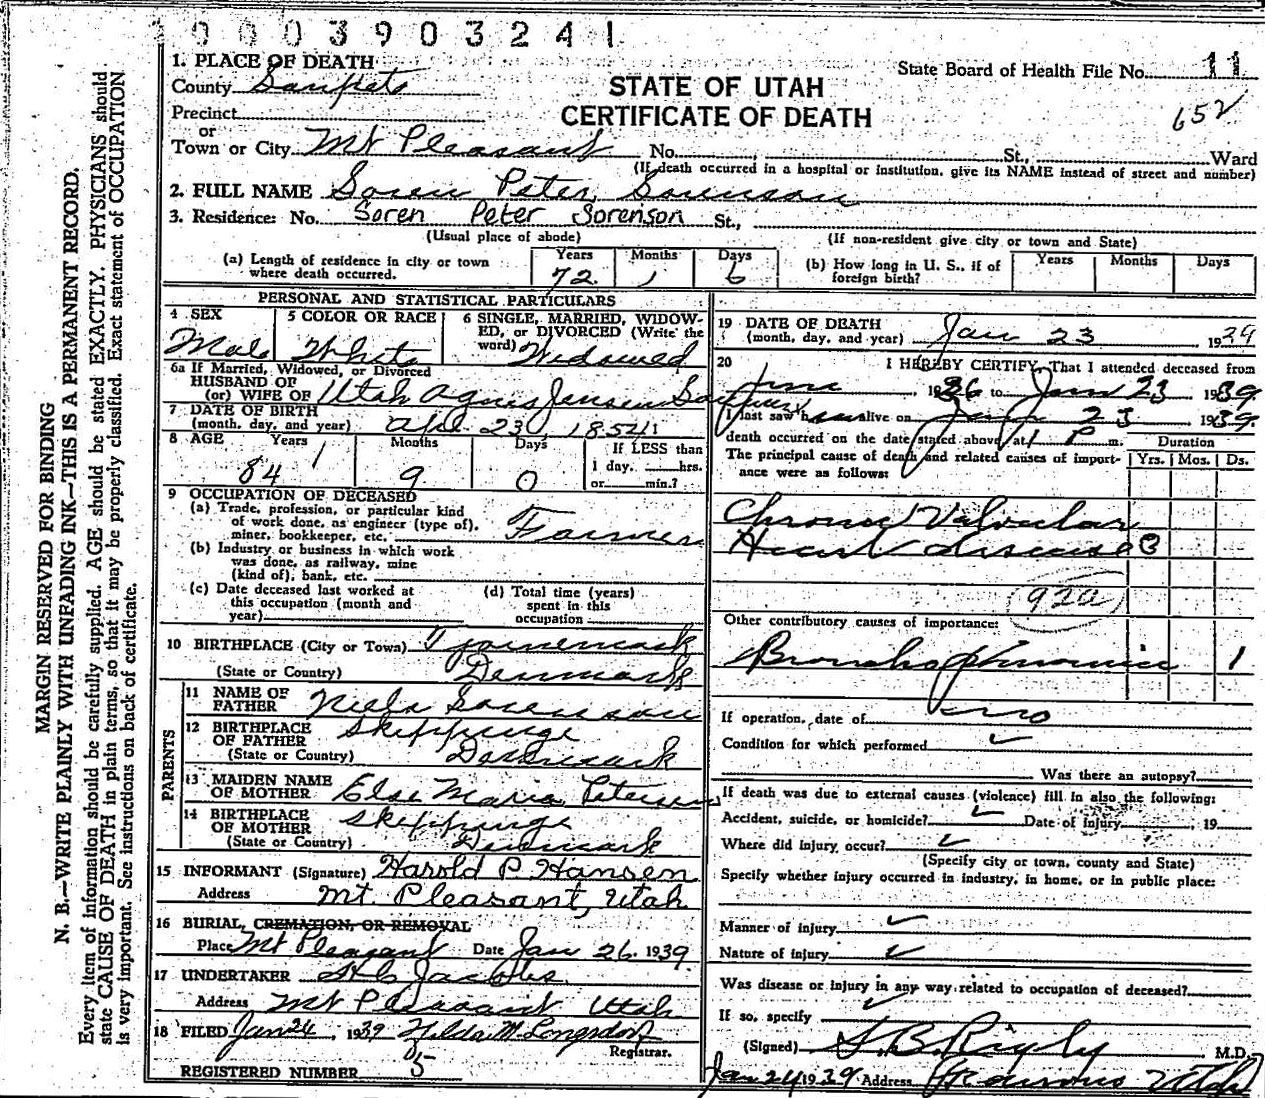 1 0 0 0 3 9 0 3 2 4 1
MARGIN RESERVED FOR BINDING
N. B.—WRITE PLAINLY WITH UNFADING INK—THIS IS A PERMANENT RECORD.
Every item of information should be carefully supplied. AGE should be stated EXACTLY. PHYSICIANS should
state CAUSE OF DEATH in plain terms, so that it may be properly classified. Exact statement of OCCUPATION
is very important. See instructions on back of certificate.
STATE OF UTAH
CERTIFICATE OF DEATH
State Board of Health File No. 11
652
1. PLACE OF DEATH
County Sanpete
Precinct
or
Town or City Mt Pleasant No. St., Ward
(If death occurred in a hospital or institution, give its NAME instead of street and number)
2. FULL NAME Soren Peter Sorenson
3. Residence: No. Soren Peter Sorenson St.,
(Usual place of abode) (If non-resident give city or town and State)
(a) Length of residence in city or town where death occurred. Years 72 Months 1 Days 6
(b) How long in U. S., if of foreign birth? Years Months Days
PERSONAL AND STATISTICAL PARTICULARS
4 SEX Male
5 COLOR OR RACE White
6 SINGLE, MARRIED, WIDOWED, or DIVORCED (Write the word) Widowed
6a If Married, Widowed, or Divorced
HUSBAND OF
(or) WIFE OF Utah Agnes Jensen
7 DATE OF BIRTH
(month, day, and year) Apr. 23, 1854
8 AGE Years 84 Months 9 Days 0 If LESS than 1 day, hrs. or min.?
9 OCCUPATION OF DECEASED
(a) Trade, profession, or particular kind of work done, as engineer (type of), miner, bookkeeper, etc. Farmer
(b) Industry or business in which work was done, as railway, mine (kind of), bank, etc.
(c) Date deceased last worked at this occupation (month and year)
(d) Total time (years) spent in this occupation
10 BIRTHPLACE (City or Town)
(State or Country) Denmark
PARENTS
11 NAME OF FATHER Niels Sorenson
12 BIRTHPLACE OF FATHER Skippinge
(State or Country) Denmark
13 MAIDEN NAME OF MOTHER Else Maria Petersen
14 BIRTHPLACE OF MOTHER Skippinge
(State or Country) Denmark
15 INFORMANT (Signature) Harold P. Hansen
Address Mt. Pleasant, Utah
16 BURIAL, CREMATION, OR REMOVAL
Place Mt Pleasant Date Jan 26. 1939
17 UNDERTAKER
Address Mt Pleasant Utah
18 FILED Jan 24, 1939 Hilda M. Longsdorf
Registrar.
REGISTERED NUMBER 5
19 DATE OF DEATH
(month, day, and year) Jan 23 1939
20 I HEREBY CERTIFY, That I attended deceased from
1936 to Jan 23 1939
I last saw h alive on Jan 23 1939.
death occurred on the date stated above, at 1 P m.
The principal cause of death and related causes of importance were as follows:
Duration
Yrs. Mos. Ds.
Chronic Valvular
Heart disease 3
92a
Other contributory causes of importance:
Broncho pneumonia 1
If operation, date of no
Condition for which performed
Was there an autopsy?
If death was due to external causes (violence) fill in also the following:
Accident, suicide, or homicide? Date of injury , 19
Where did injury occur?
(Specify city or town, county and State)
Specify whether injury occurred in industry, in home, or in public place:
Manner of injury
Nature of injury
Was disease or injury in any way related to occupation of deceased?
If so, specify
(Signed) S. B. Rigby, M.D.
Jan 24 1939 Address Utah